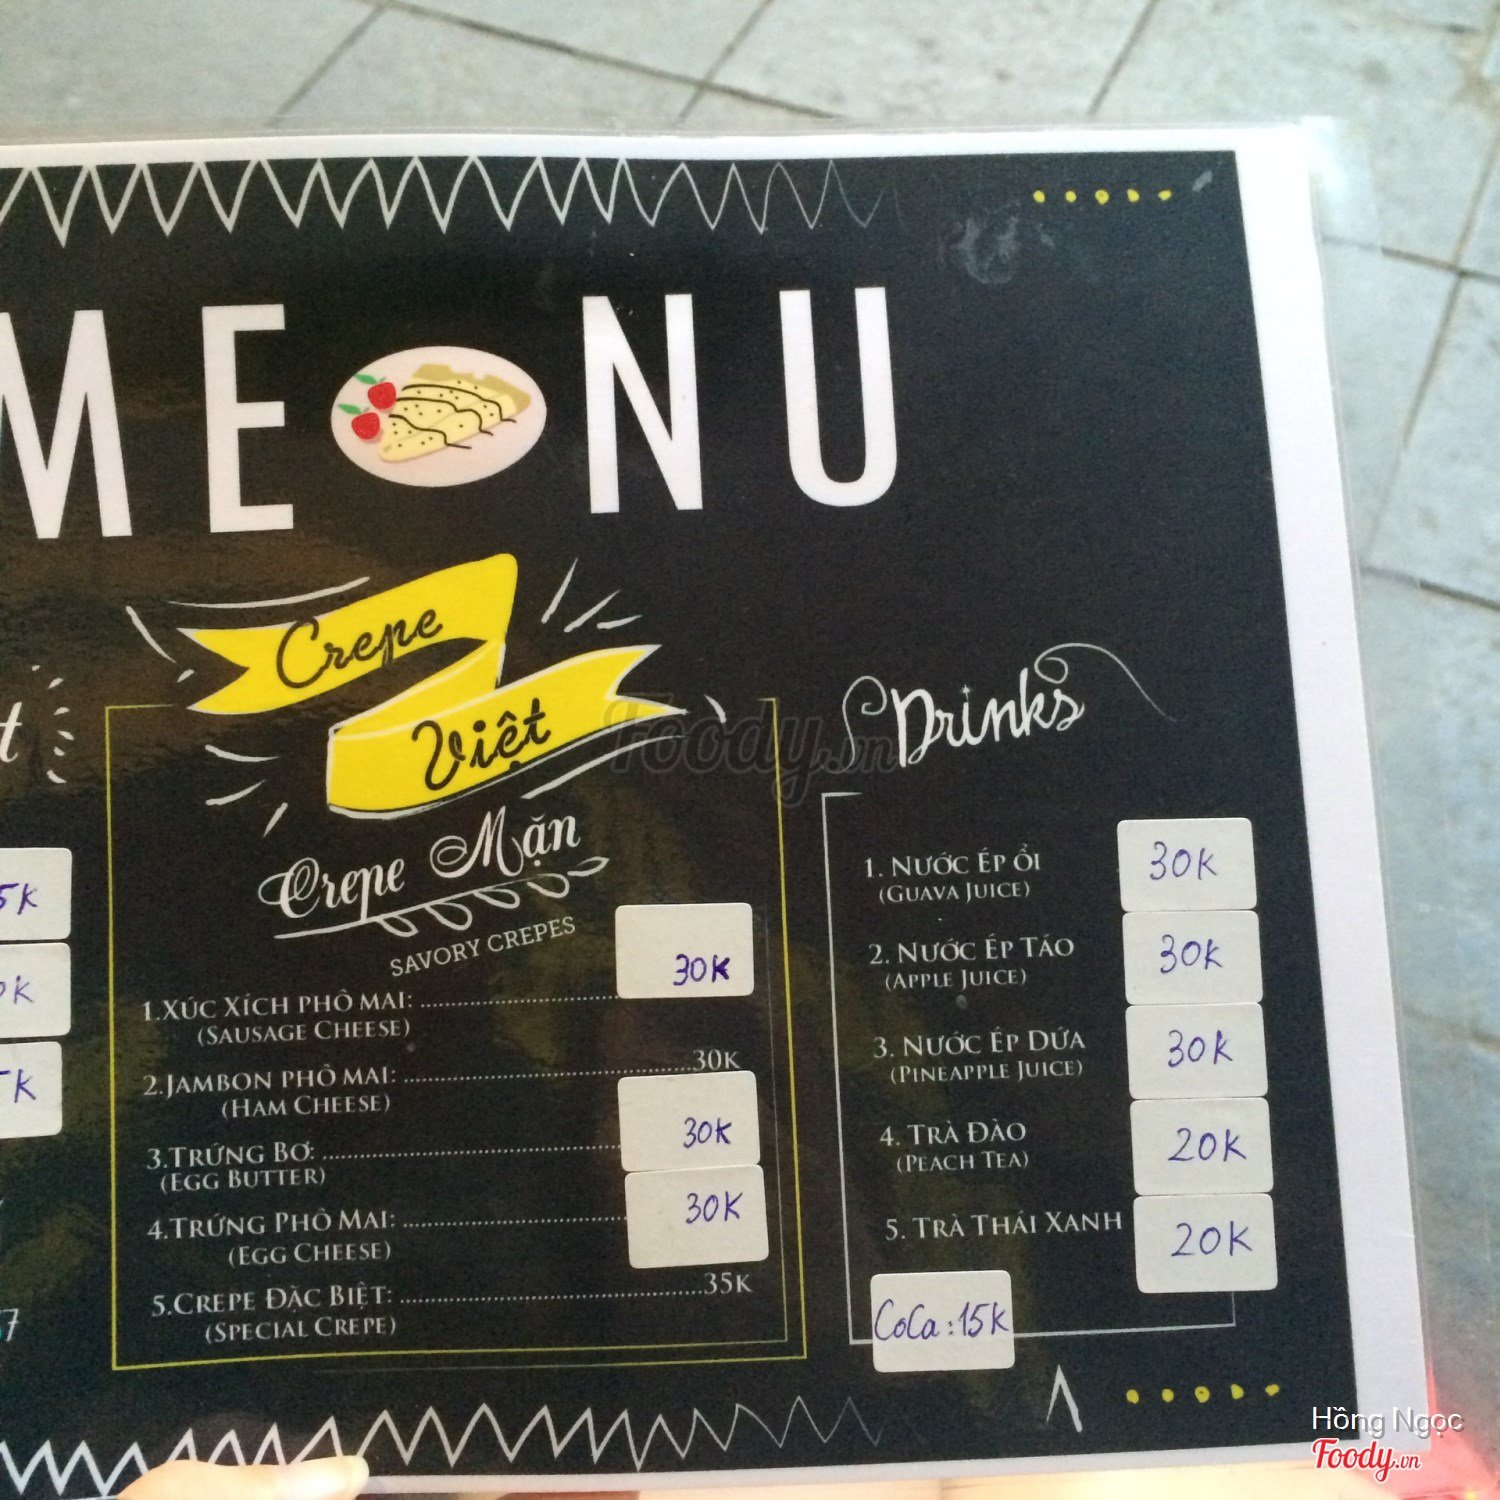 MENU
Crepe
Việt
Crepe Mặn
SAVORY CREPES
1.XÚC XÍCH PHÔ MAI: 30K
(SAUSAGE CHEESE)
2.JAMBON PHÔ MAI: 30K
(HAM CHEESE)
3.TRỨNG BƠ: 30K
(EGG BUTTER)
4.TRỨNG PHÔ MAI: 30K
(EGG CHEESE)
5.CREPE ĐẶC BIỆT: 35K
(SPECIAL CREPE)
Drinks
1. NƯỚC ÉP ỔI 30K
(GUAVA JUICE)
2. NƯỚC ÉP TÁO 30K
(APPLE JUICE)
3. NƯỚC ÉP DỨA 30K
(PINEAPPLE JUICE)
4. TRÀ ĐÀO 20K
(PEACH TEA)
5. TRÀ THÁI XANH 20K
CoCa : 15K
Foody.vn
Hồng Ngọc
Foody.vn